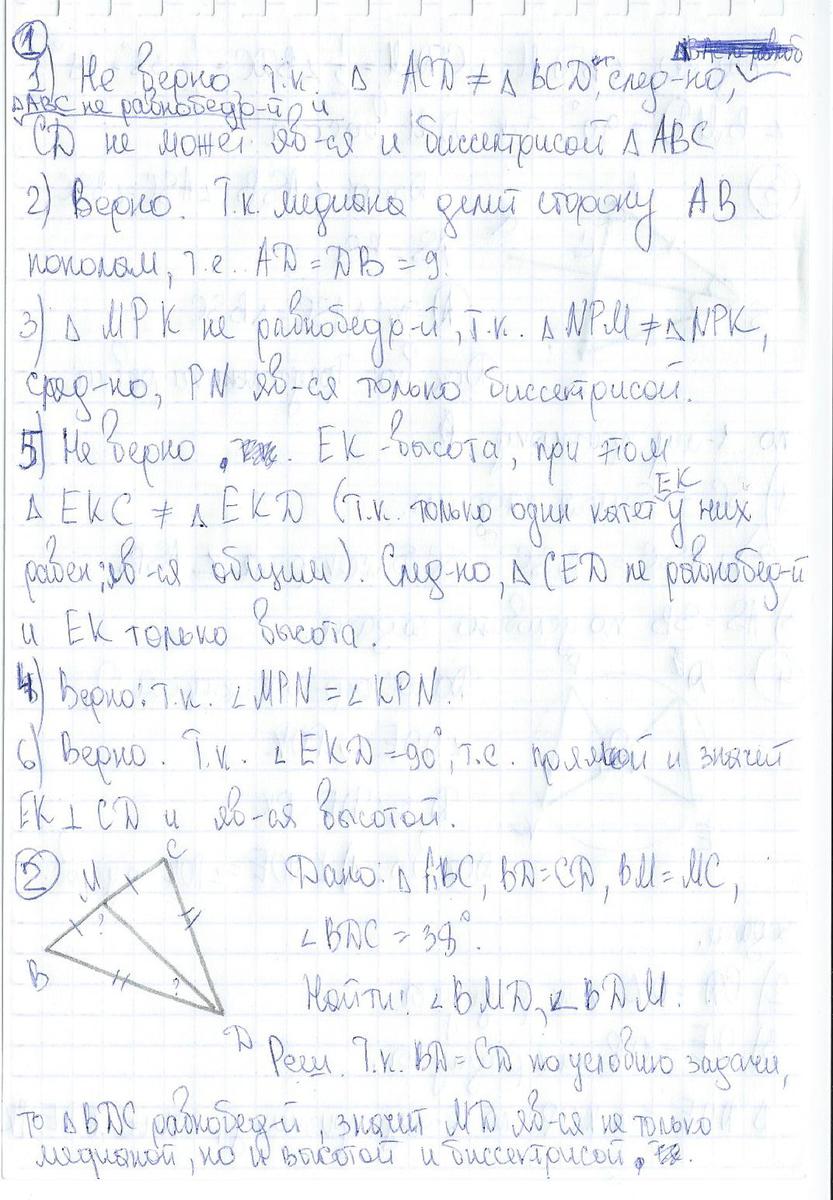 1
1) Не верно, т.к. Δ ACD ≠ Δ BCD, след-но,
ΔABC не равнобедр-й и
CD не может яв-ся и биссектрисой Δ ABC
2) Верно. Т.к. медиана делит сторону AB
пополам, т.е. AD = DB = 9.
3) Δ MPK не равнобедр-й, т.к. Δ NPM ≠ Δ NPK,
след-но, PN яв-ся только биссектрисой.
5) Не верно. EK - высота, при этом
Δ EKC ≠ Δ EKD (т.к. только один катет EK у них
равен, яв-ся общим). След-но, Δ CED не равнобед-й
и EK только высота.
4) Верно: т.к. ∠MPN = ∠KPN.
6) Верно. Т.к. ∠EKD = 90°, т.е. прямой и значит
EK ⊥ CD и яв-ся высотой.
2
C
M
?
B
?
D
Дано: Δ ABC, BD=CD, BM=MC,
∠BDC = 38°.
Найти: ∠BMD, ∠BDM.
Реш. Т.к. BD=CD по условию задачи,
то ΔBDC равнобед-й, значит MD яв-ся не только
медианой, но и высотой и биссектрисой.